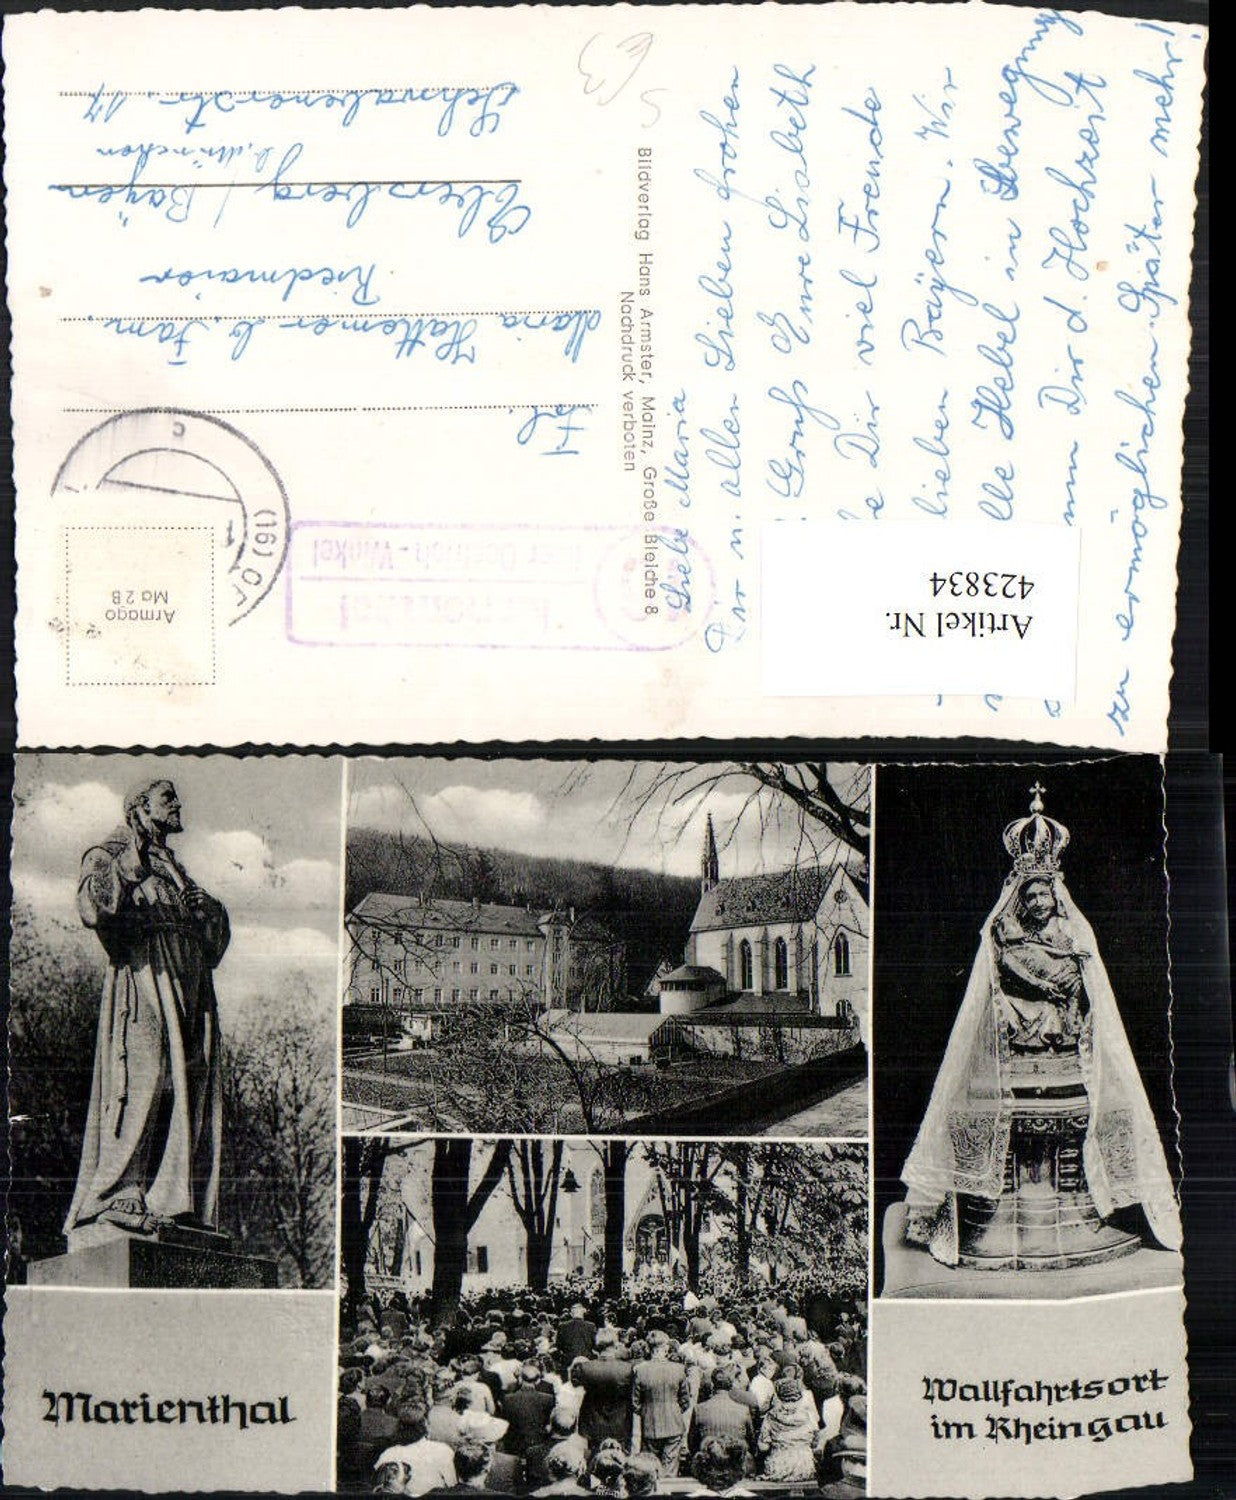 Liebe Maria
Dir u. allen Lieben frohen
Gruß Eure Lisbeth
Dir viel Freude
lieben Bayern. Wir
Hebel in Bewegung
um Dir d. Hochzeit
zu ermöglichen. Später mehr!
Bildverlag Hans Armster, Mainz, Große Bleiche 8
Nachdruck verboten
Frl.
Maria Hattemer b. Fam.
Riedmaier
Ebersberg / Bayern
b. München
Schwabenerstr. 17
(16)
c
über Oestrich-Winkel
Armago
Ma 2 B
Artikel Nr.
423834
Marienthal
Wallfahrtsort
im Rheingau